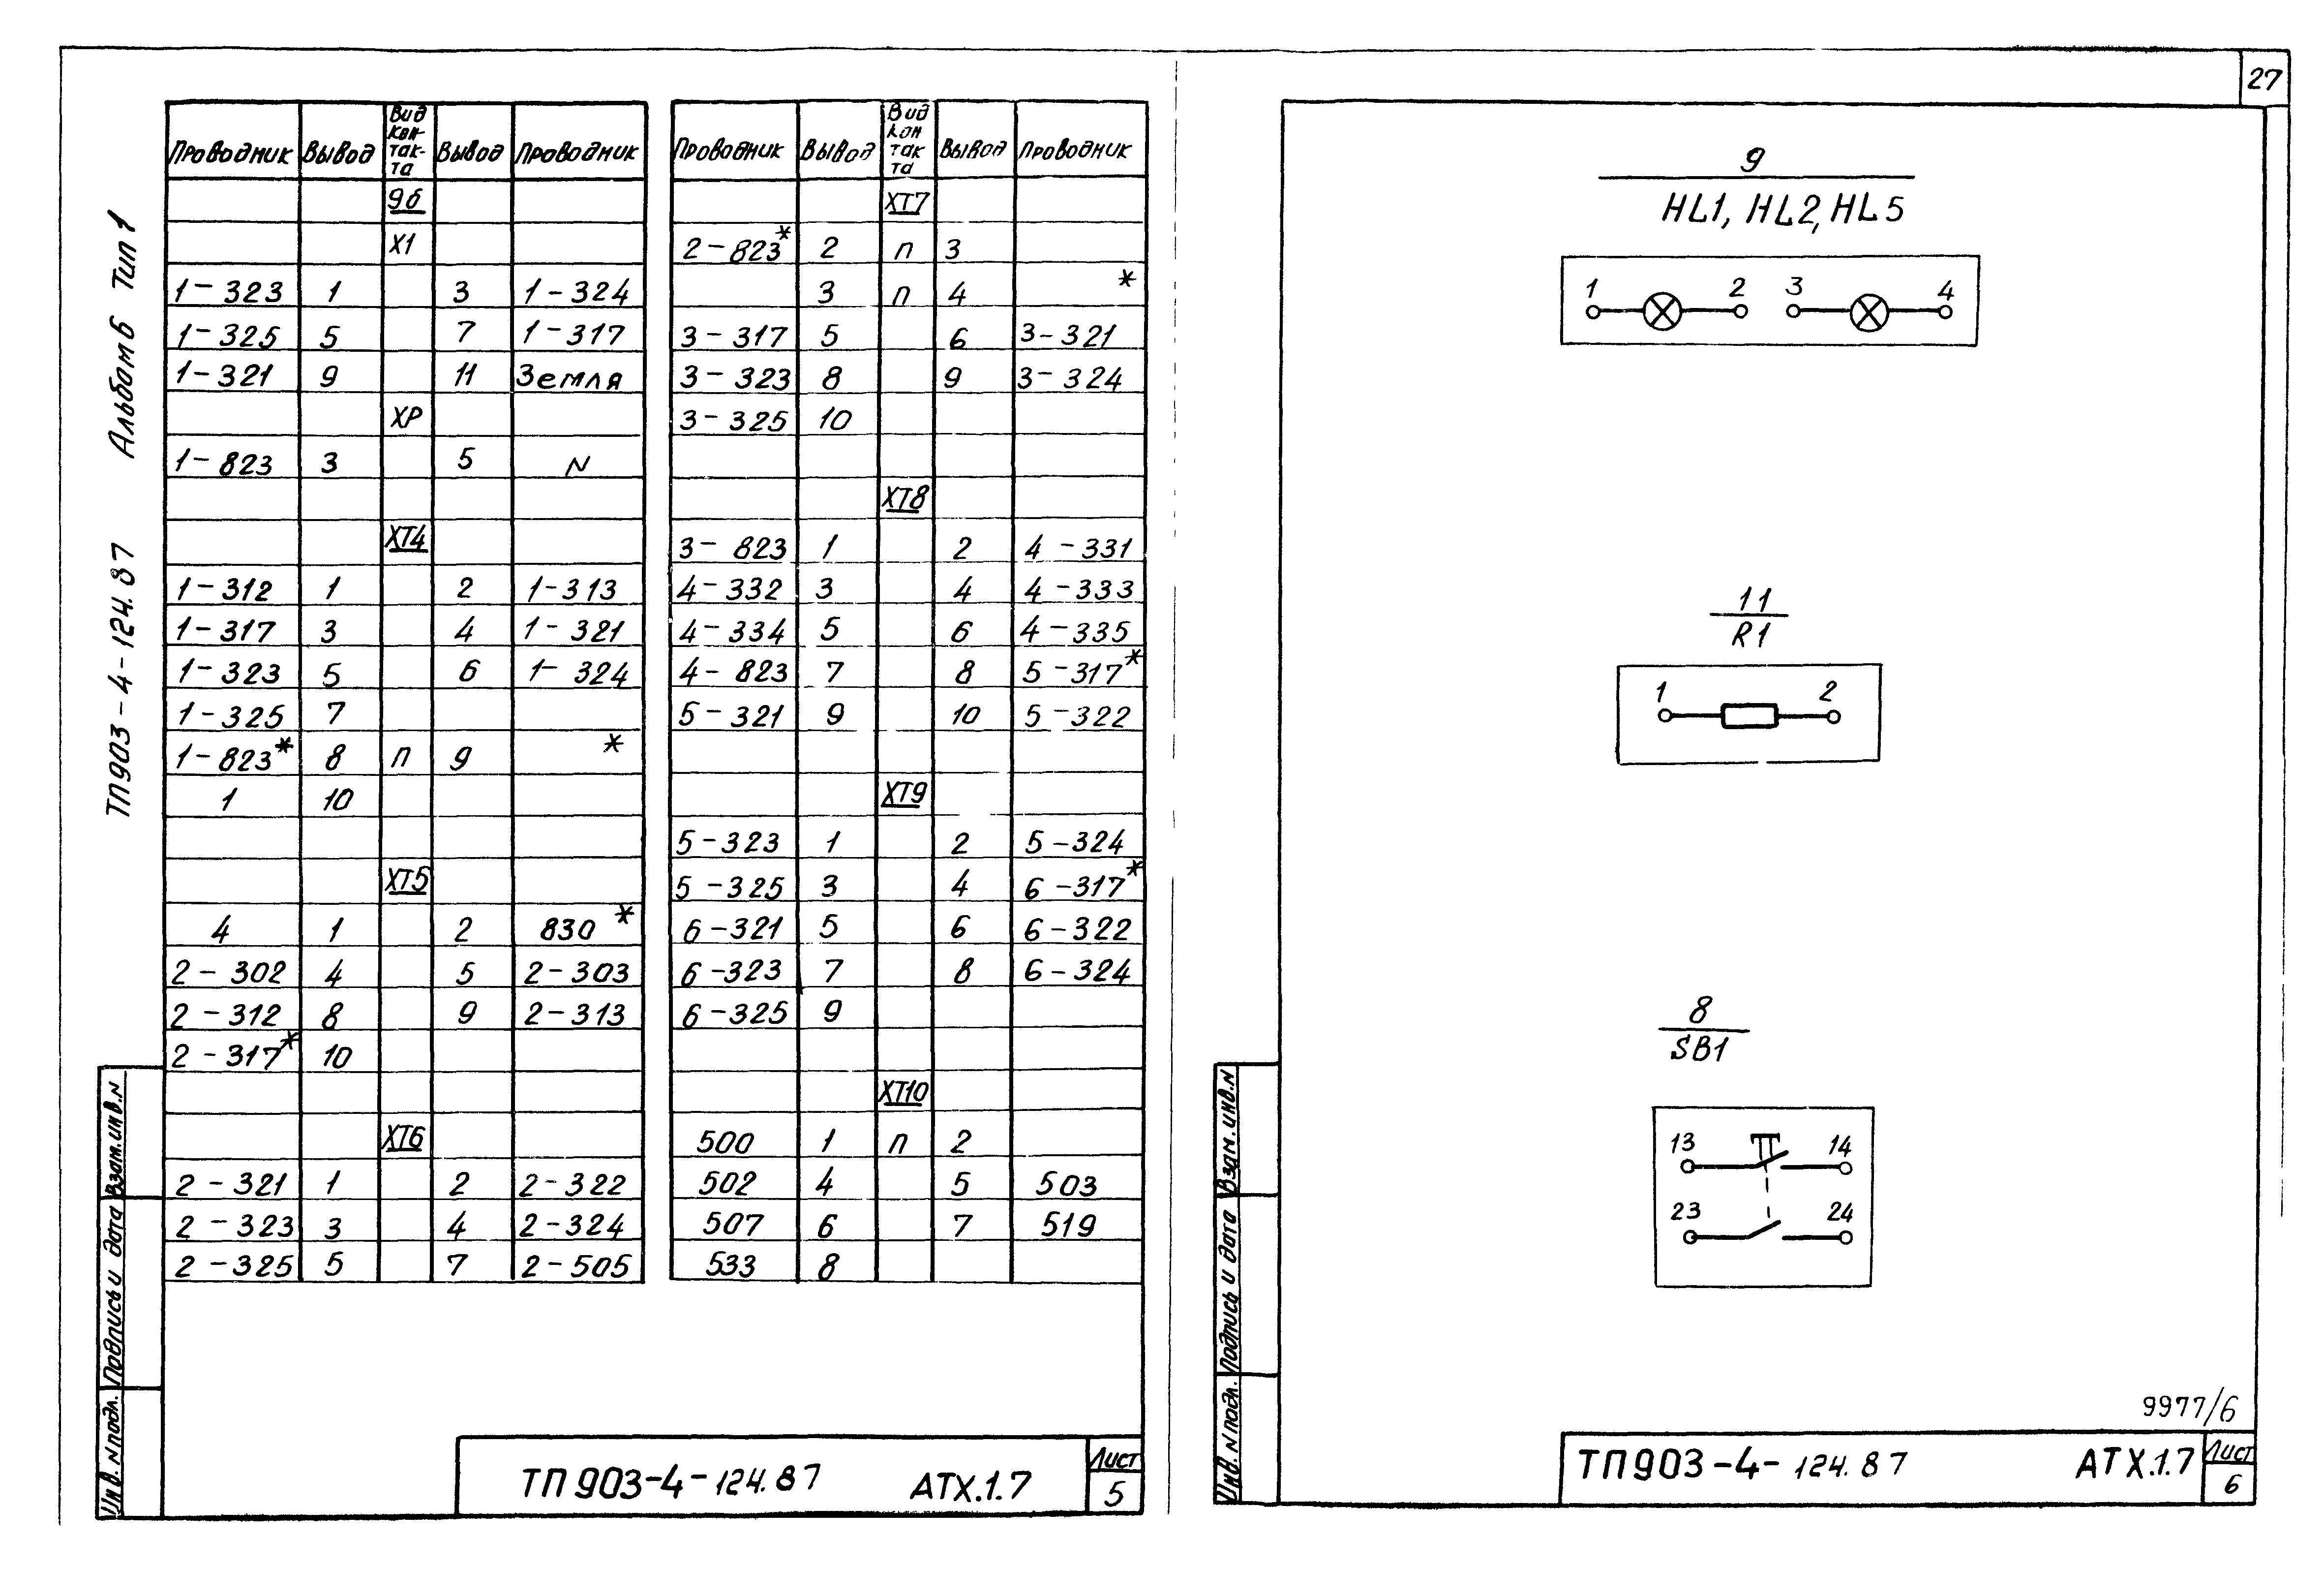 27
ТП903-4-124.87 Альбом 6 Тип 1
Проводник Вывод Вид кон-так-та Вывод Проводник
9б
X1
1-323 1 3 1-324
1-325 5 7 1-317
1-321 9 11 Земля
XP
1-823 3 5 N
XT4
1-312 1 2 1-313
1-317 3 4 1-321
1-323 5 6 1-324
1-325 7
1-823* 8 п 9 *
1 10
XT5
4 1 2 830*
2-302 4 5 2-303
2-312 8 9 2-313
2-317* 10
XT6
2-321 1 2 2-322
2-323 3 4 2-324
2-325 5 7 2-505
Проводник Вывод Вид кон так та Вывод Проводник
XT7
2-823* 2 п 3
3 п 4 *
3-317 5 6 3-321
3-323 8 9 3-324
3-325 10
XT8
3-823 1 2 4-331
4-332 3 4 4-333
4-334 5 6 4-335
4-823 7 8 5-317*
5-321 9 10 5-322
XT9
5-323 1 2 5-324
5-325 3 4 6-317*
6-321 5 6 6-322
6-323 7 8 6-324
6-325 9
XT10
500 1 п 2
502 4 5 503
507 6 7 519
533 8
Инв. N подл. Подпись и дата Взам. инв. N
ТП903-4-124.87 АТХ.1.7
Лист
5
9
HL1, HL2, HL5
1 2 3 4
11
R1
1 2
8
SB1
13 14
23 24
Инв. N подл. Подпись и дата Взам. инв. N
9977/6
ТП903-4-124.87 АТХ.1.7
Лист
6